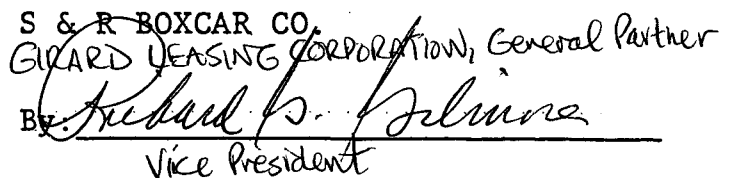 S & R BOXCAR CO.
GIRARD LEASING CORPORATION, General Partner
By: Richard S. Gilmore
Vice President